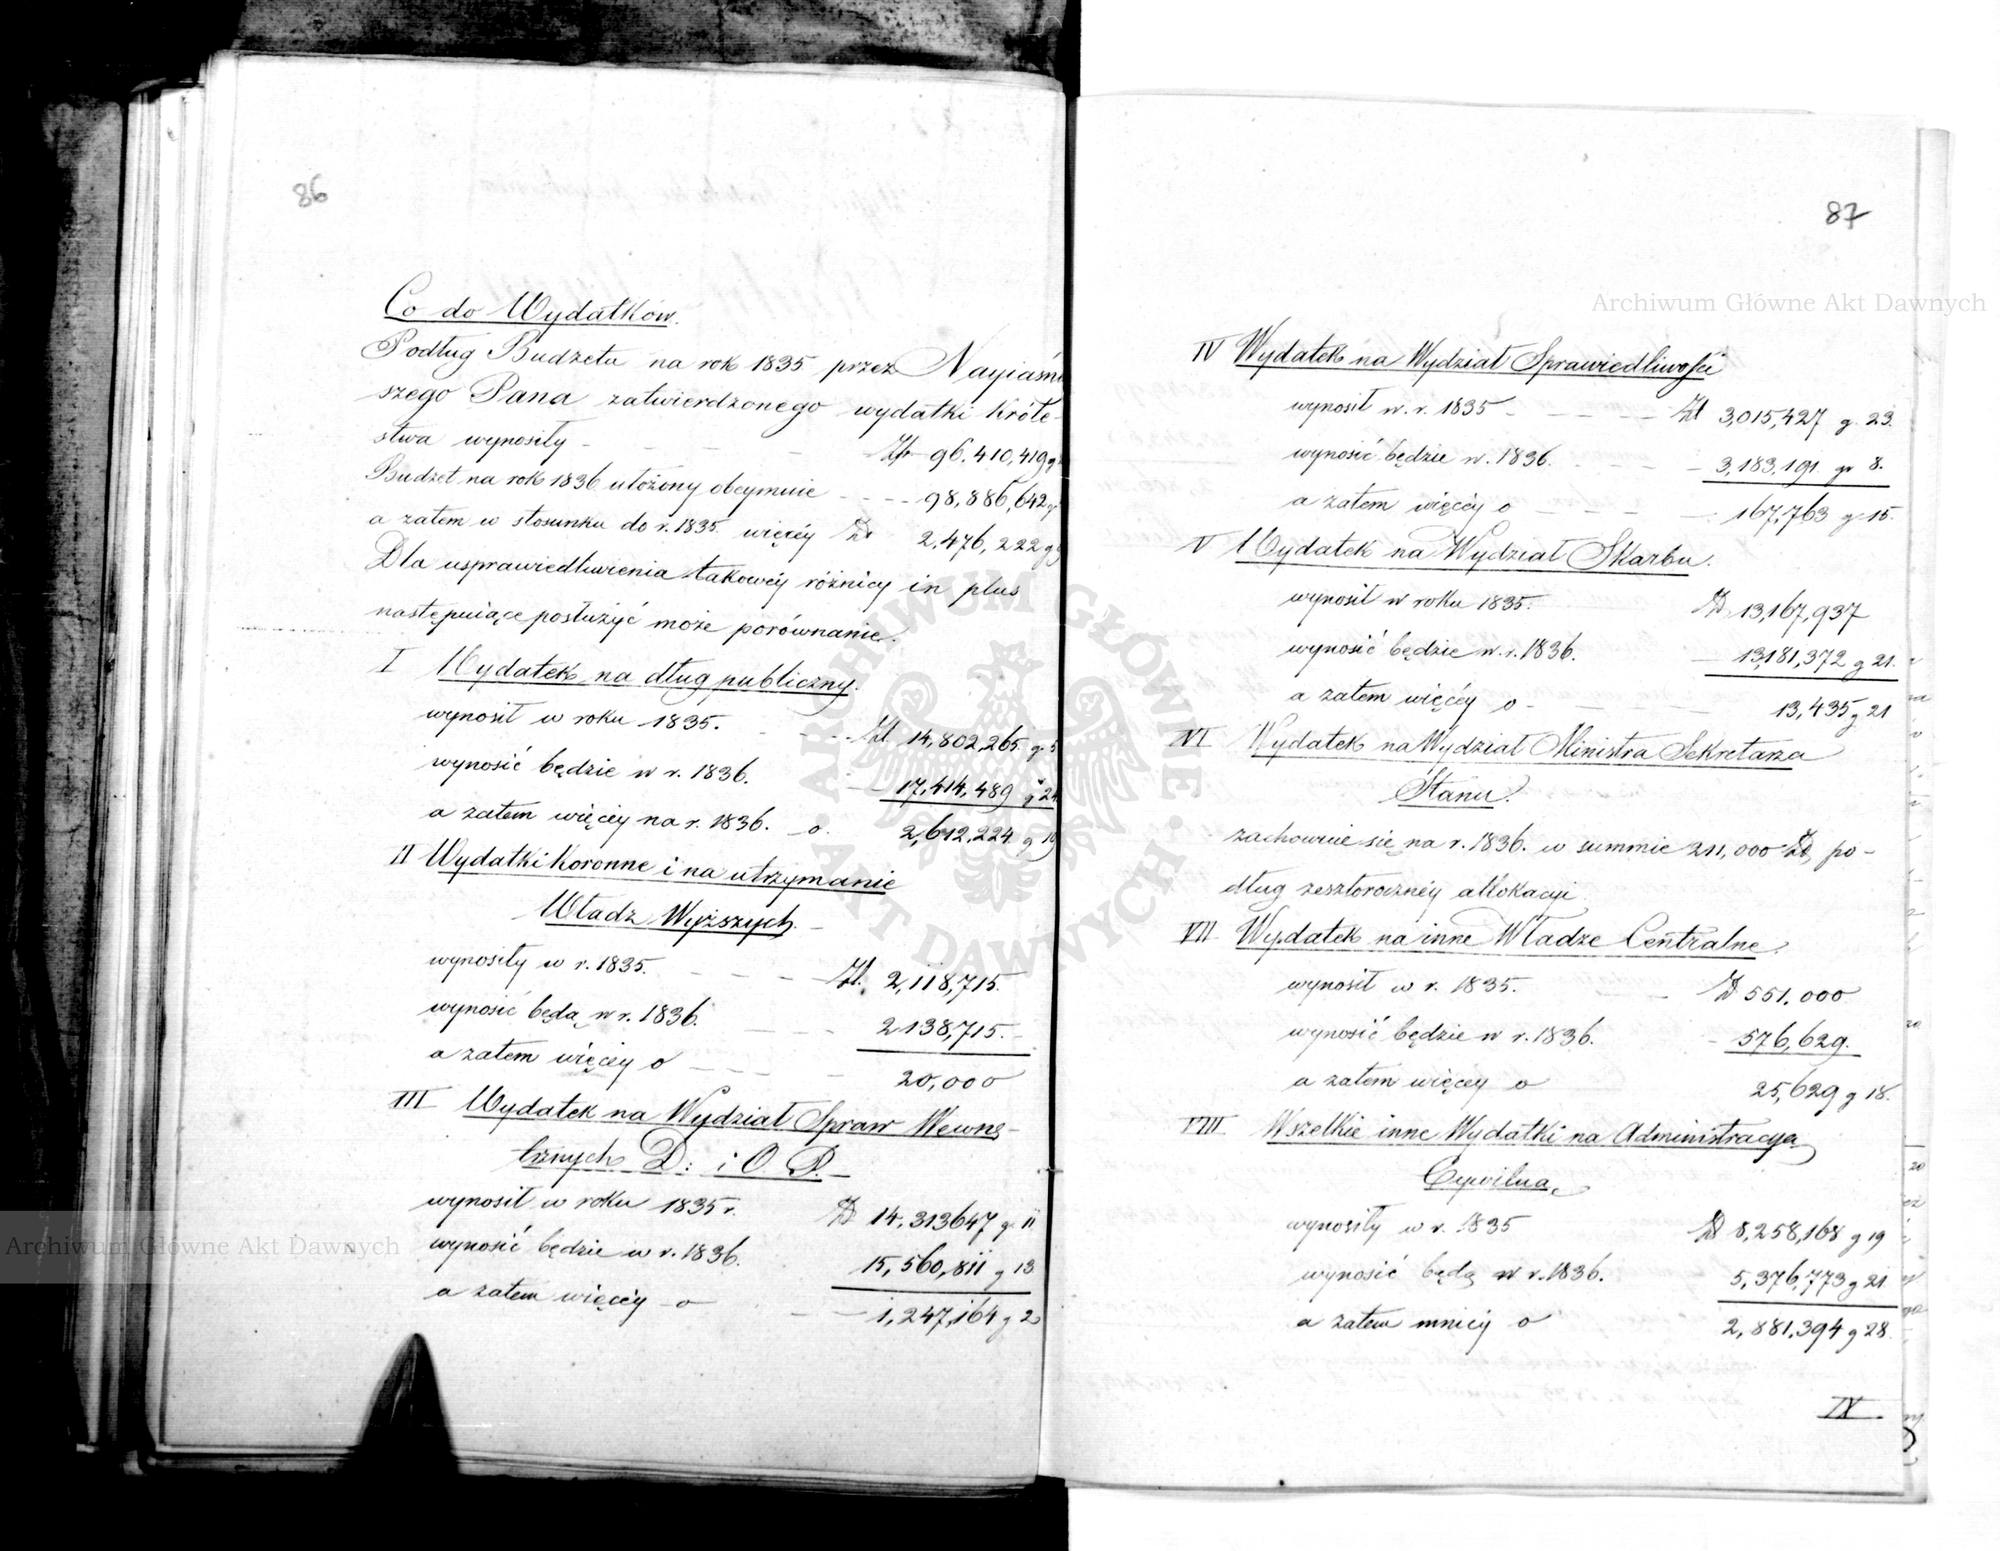 86
Co do Wydatków.
Podług Budżetu na rok 1835 przez Nayiaśni
szego Pana zatwierdzonego wydatki Króle-
stwa wynosiły - - - - Złp 96.410,419 g
Budżet na rok 1836 ułożony obeymuie - - - - 98,886,642 g
a zatem w stosunku do r. 1835 więcéy Zł 2,476,222 g
Dla usprawiedliwienia takowéy różnicy in plus
następuiące posłużyć może porównanie.
I Wydatek na dług publiczny.
wynosił w roku 1835. - - - Zł 14,802,265 g. 5
wynosić będzie w r. 1836. - - 17,414,489 g 24
a zatem więcéy na r. 1836. o. 2,612,224 g 19
II Wydatki Koronne i na utrzymanie
Władz Wyższych. -
wynosiły w r. 1835. - - - - Zł. 2,118,715.
wynosić będą w r. 1836. - - - 2138,715. -
a zatem więcéy o - - - - 20,000
III Wydatek na Wydział Spraw Wewnę-
trznych D: i O. P. -
wynosił w roku 1835 r. Zł 14,313647 g. 11
wynosić będzie w r. 1836. 15,560,811 g 13
a zatem więcéy o - - 1,247,164 g 2
87
IV Wydatek na Wydział Sprawiedliwości
wynosił w. r. 1835 - - - - - Zł 3,015,427 g. 23.
wynosić będzie w. 1836. - - - - 3,183,191 gr 8.
a zatem więcéy o - - - - 167,763 g 15.
V Wydatek na Wydział Skarbu.
wynosił w roku 1835. Zł 13,167,937
wynosić będzie w. r. 1836. - 13,181,372 g 21.
a zatem więcéy o - - - - - 13,435 g 21
VI Wydatek na Wydział Ministra Sekretarza
Stanu.
zachowuie się na r. 1836. w summie 211,000 Zł, po-
dług zeszłorocznéy allokacyi.
VII Wydatek na inne Władze Centralne.
wynosił w r. 1835. - Zł 551.000
wynosić będzie w r. 1836. - 576,629.
a zatem więcey o 25,629 g 18.
VIII Wszelkie inne Wydatki na Administracyą
Cywilną.
wynosiły w r. 1835 Zł 8,258,168 g 19
wynosić będą w r. 1836. 5,376,773 g 21
a zatem mniéy o 2,881,394 g 28.
IX.
Archiwum Główne Akt Dawnych
Archiwum Główne Akt Dawnych
ARCHIWUM GŁÓWNE · AKT DAWNYCH ·